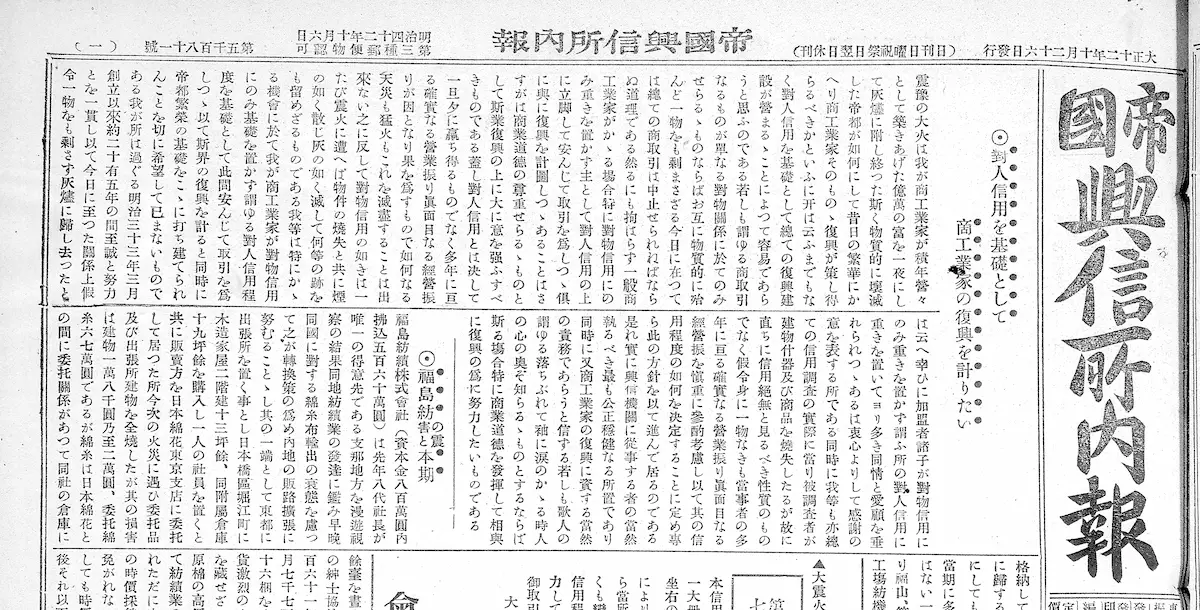 大正十二年十月二十六日發行
(日刊日曜祝祭日翌日休刊)
帝國興信所內報
明治四十二年十月六日
第三種郵便物認可
第五千百八十一號
(一)
帝國興信所內報
◎對人信用を基礎として
商工業家の復興を計りたい
震愾の大火は我が商工業家が積年營々
として築きあげた億萬の富を一夜にし
て灰燼に附し終つた斯く物質的に壞滅
した帝都が如何にして昔日の繁華にか
へり商工業家そのものゝ復興が策し得
らるべきかといふに开は云ふまでもな
く對人信用を基礎として總ての復興建
設が營まるゝことによつて容易であら
うと思ふのである若しも謂ゆる商取引
なるものが單なる對物關係に於てのみ
せらるゝものならばお互に物質的に殆
んど一物をも剩まさざる今日に在つて
は總ての商取引は中止せられねばなら
ぬ道理である然るにも拘はらず一般商
工業家がかゝる場合特に對物信用にの
み重きを置かず主として對人信用の上
に立脚して安んじて取引を爲しつゝ俱
に與に復興を計圖しつゝあることはさ
すがは商業道德の尊重せらるゝものと
して斯業復興の上に大に意を强ふすべ
きものである蓋し對人信用とは決して
一旦夕に贏ち得るものでなく多年に亘
る確實なる營業振り眞面目なる經營振
りが因となり果を爲すもので如何なる
天災も猛火もこれを滅盡することは出
來ない之に反して對物信用の如きは一
たび震火に遭へば物件の燒失と共に煙
の如く散じ灰の如く滅して何等の跡を
も留めざるものである我等は特にかゝ
る機會に於て我が商工業家が對物信用
にのみ基礎を置かず謂ゆる對人信用程
度を基礎として此間安んじて取引を爲
しつゝ以て斯界の復興を計ると同時に
帝都繁榮の基礎をこゝに打ち建てられ
んことを切に希望して已まないもので
ある我が所は過ぐる明治三十三年三月
創立以來約二十有五年の間至誠と努力
とを一貫し以て今日に至つた關係上假
令一物をも剩さず灰燼に歸し去つたと
は云へ幸ひに加盟者諸子が對物信用に
のみ重きを置かず謂ふ所の對人信用に
重きを置いてヨリ多き同情と愛顧を垂
れられつゝあるは衷心よりして感謝の
意を表する所である同時に我等も亦總
ての信用調査の實際に當り被調査者が
建物什器及び商品を燒失したるが故に
直ちに信用絕無と見るべき性質のもの
でなく假令身に一物なきも當事者の多
年に亘る確實なる營業振り眞面目なる
經營振を愼重に參酌考慮し以て其の信
用程度の如何を決定することに定め專
ら此の方針を以て進んで居るのである
是れ實に興信機關に從事する者の當然
執るべき最も公正穩健なる所置であり
同時に又商工業家の復興に資する當然
の責務であらうと信する若しも歌人の
謂ゆる落ちぶれて秞に淚のかゝる時人
の心の奧ぞ知らるゝものとするならば
斯る塲合特に商業道德を發揮して相與
に復興の爲に努力したいものである
◎福島紡の震害と本期
福島紡績株式會社(資本金八百萬圓內
拂込五百六十萬圓)は先年八代社長が
唯一の得意先である支那地方を漫遊視
察の結果同地紡績業の發達に鑑み早晚
同國に對する綿糸布輸出の衰態を慮つ
て之が轉換策の爲め內地の販路擴張に
努むることゝし其の一端として東都に
出張所を置く事とし日本橋區堀江町に
木造家屋二階建十三坪餘、同附屬倉庫
十九坪餘を購入し一人の社員を置くと
共に販賣方を日本棉花東京支店に委托
して居つた所今次の火災に遇ひ委托品
及び出張所建物を全燒したが其の損害
は建物一萬八千圓乃至二萬圓、委托綿
糸六七萬圓であるが綿糸は日本綿花と
の間に委托關係があつて同社の倉庫に